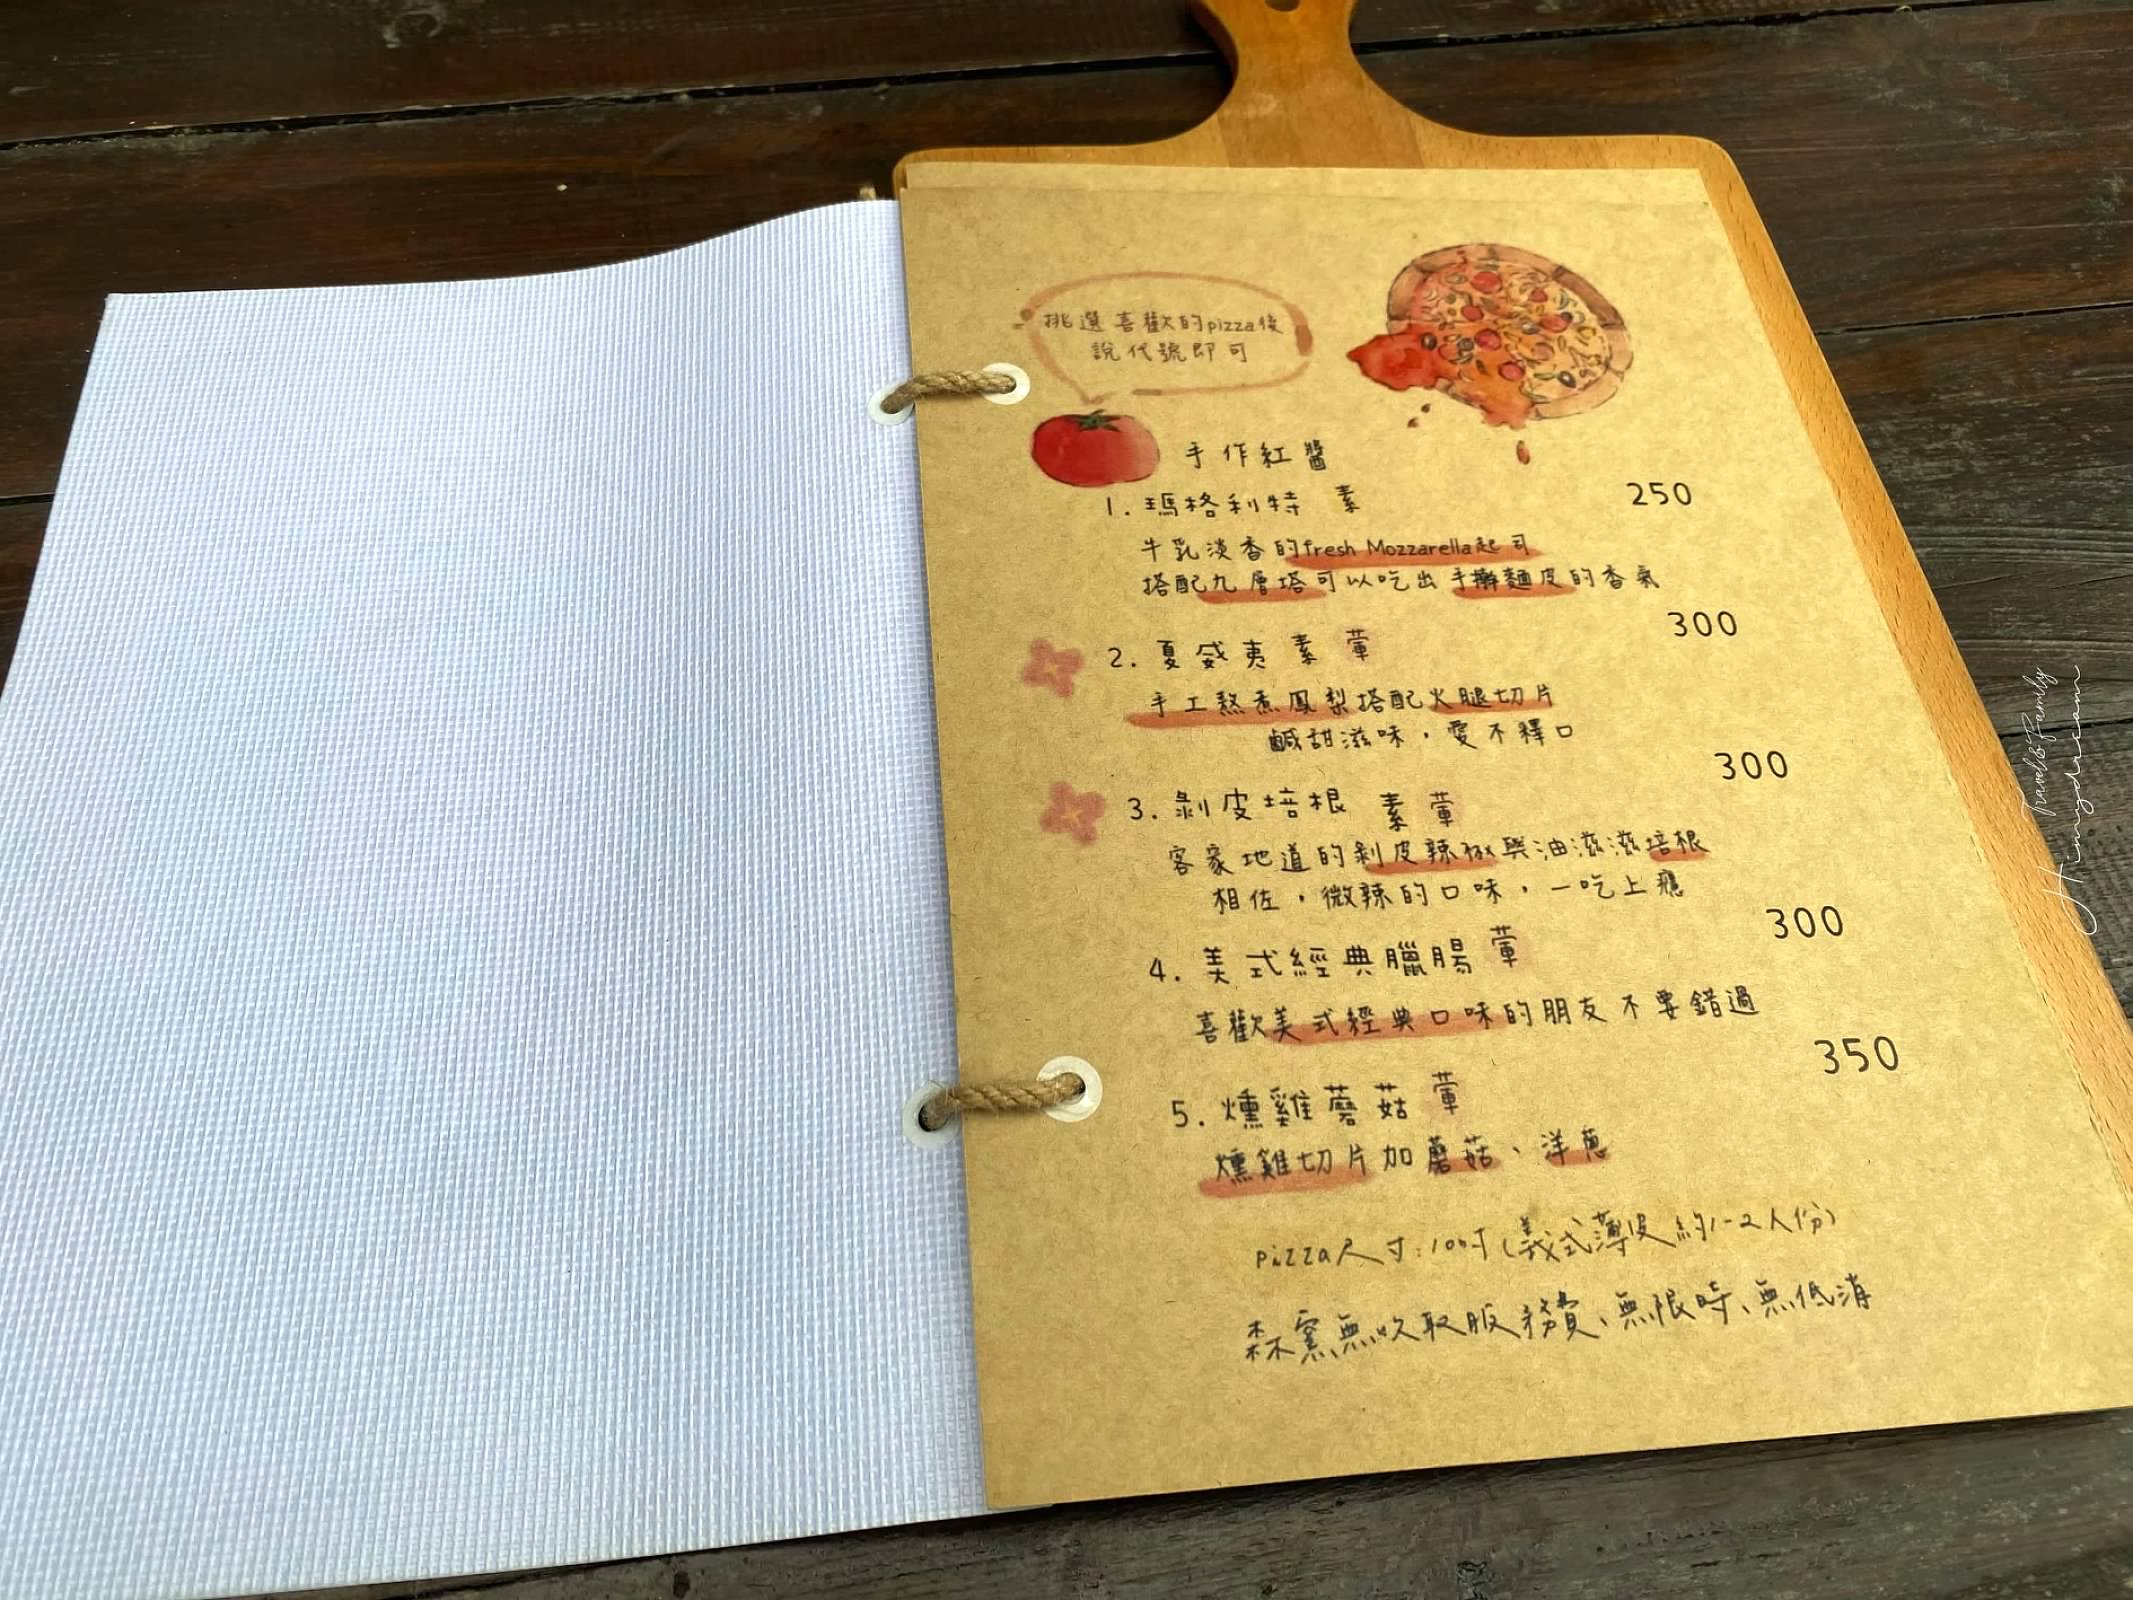 挑選喜歡的pizza後
說代號即可
手作紅醬
1. 瑪格利特 素 250
牛乳淡香的fresh Mozzarella起司
搭配九層塔可以吃出手擀麵皮的香氣
2. 夏威夷 素 葷 300
手工熬煮鳳梨搭配火腿切片
鹹甜滋味，愛不釋口
3. 剝皮培根 素 葷 300
客家地道的剝皮辣椒與油滋滋培根
相佐，微辣的口味，一吃上癮
4. 美式經典臘腸 葷 300
喜歡美式經典口味的朋友不要錯過
5. 燻雞蘑菇 葷 350
燻雞切片加蘑菇、洋蔥
pizza尺寸:10吋(義式薄皮約1-2人份)
森窯無收取服務費、無限時、無低消
Travel & Family
Jimydream